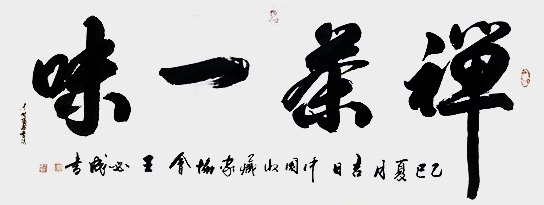 禅茶一味
乙巳夏月吉日中国收藏家協會王必成书